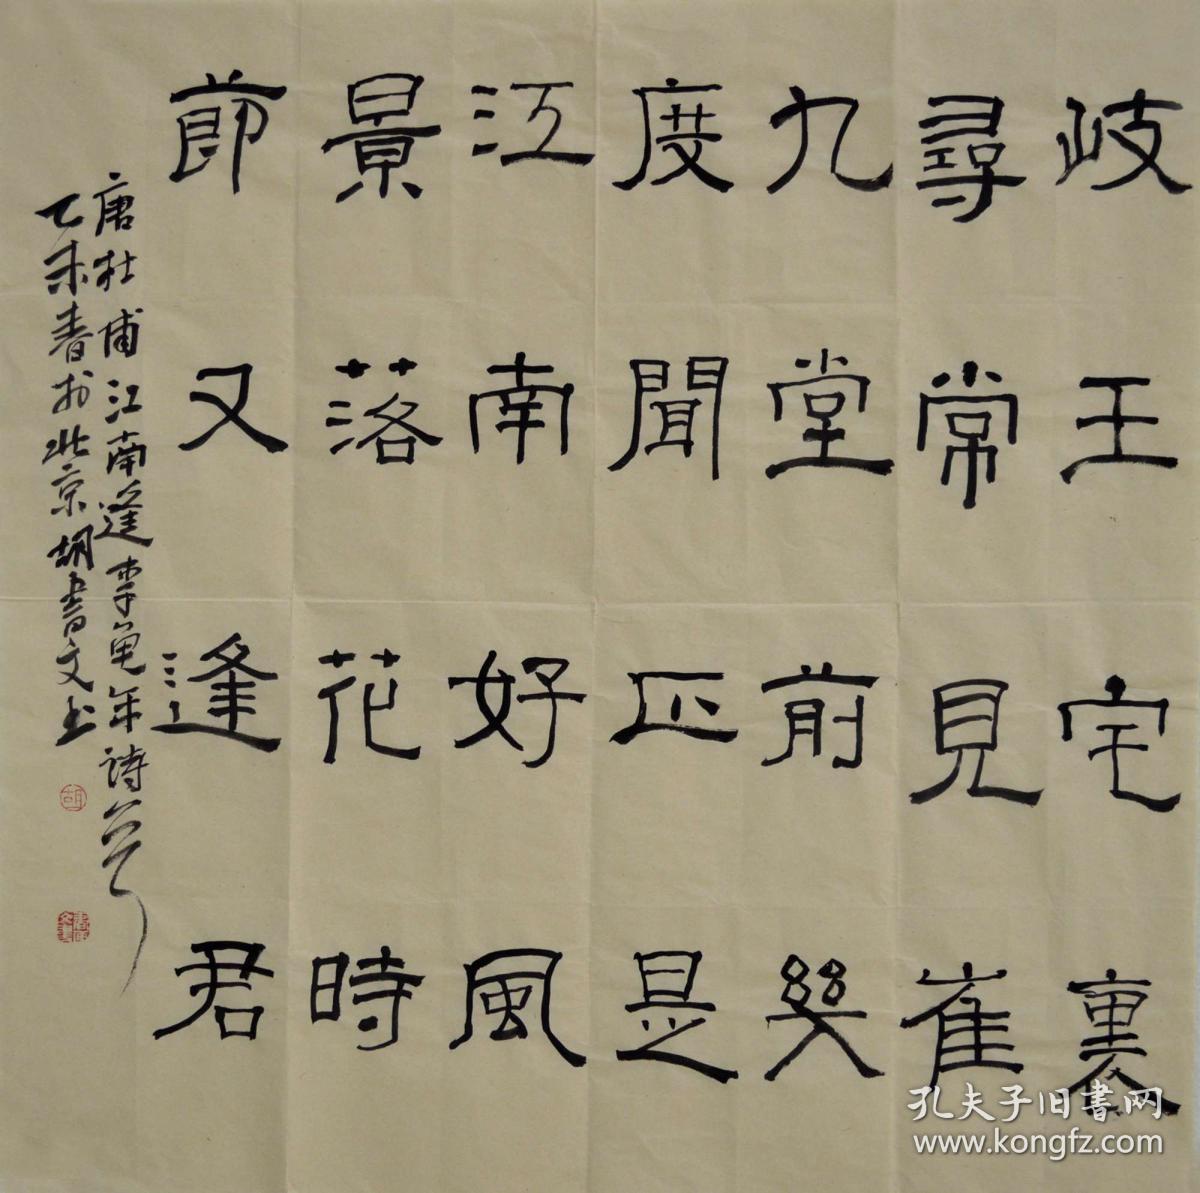 岐王宅裏
尋常見崔
九堂前幾
度聞正是
江南好風
景落花時
節又逢君
唐杜甫江南逢李龟年詩一首
乙未春於北京胡書文书
胡
孔夫子旧書网
www.kongfz.com